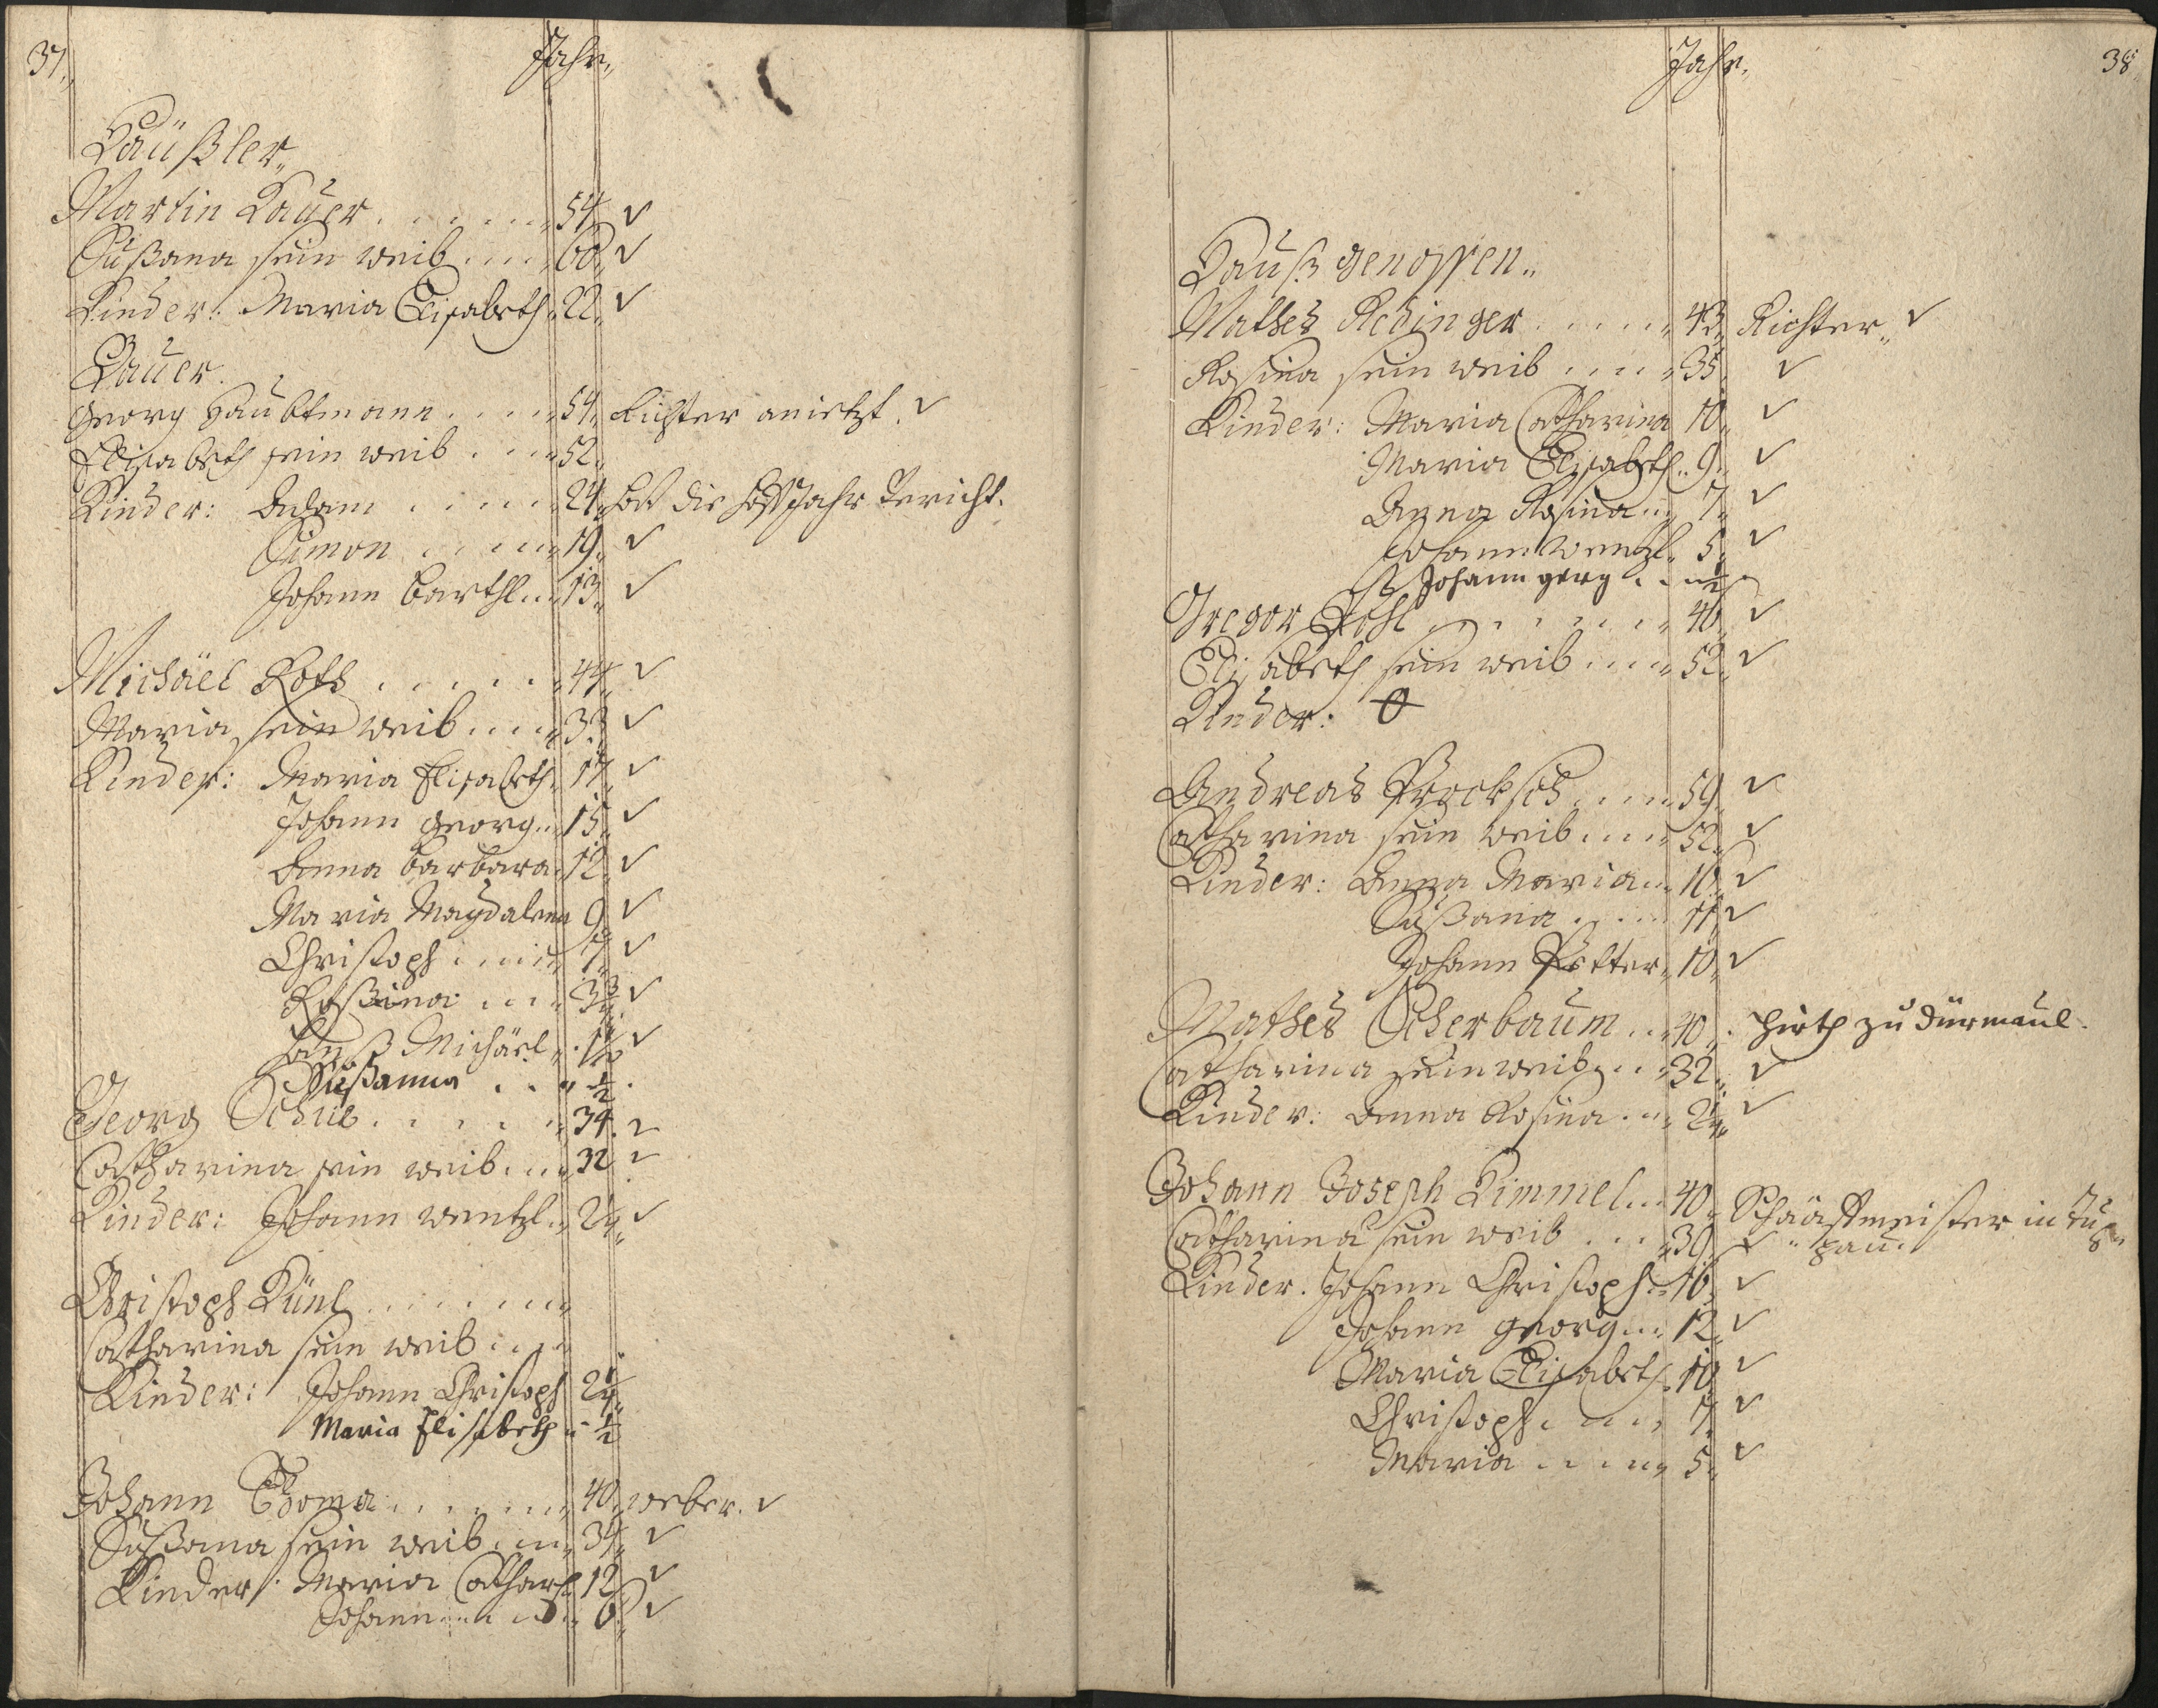 37.
Jahr,
Häußler,
Martin Bauer . . . . . 54 ✓
Sußana sein weib . . . . 60 ✓
Kinder: Maria Elisabeth 22 ✓
Bauer.
Georg Haubtmann . . . . 54 Richter anietzt. ✓
Elisabeth sein weib . . . 52
Kinder: Adam . . . . 24 hat die
Simon . . . . 19 ✓
Johann Barthl . . 13 ✓
Michäel Roth . . . . . 44 ✓
Maria sein weib . . . . 33 ✓
Kinder: Maria Elisabeth 17 ✓
Johann Georg . . 15 ✓
Anna Barbara 12 ✓
Maria Magdalena 9 ✓
Christoph . . . . 7 ✓
Roßina . . . . 3 3/4 ✓
Hanß Michäel ✓
Sußanna . . . 1/2
Georg . . . . . 34 ✓
Catharina sein weib . . . 32 ✓
Kinder: Johann Wentzl . . 2 1/4 ✓
Christoph Künl . . . . . .
Catharina sein weib . . . .
Kinder: Johann Christoph 2 1/4
Maria Elisabeth 1/2
Johann Thoma . . . . . 40 weber. ✓
Sußana sein weib . . . 34 ✓
Kinder: Maria Cathar. 12 ✓
Johann . . . . . 6 ✓
Jahr,
38
Hauß genossen,
Mathes Redinger . . . . . 43 Richter, ✓
Rosina sein weib . . . . 35 ✓
Kinder: Maria Catharina 10 ✓
Maria Elisabeth . . 9 ✓
Anna Rosina . . . 7 ✓
Johann Wentzl 5 ✓
Johann Georg . . . 1/2
Gregor Pohl . . . . . . 46 ✓
Elisabeth sein weib . . . . 52 ✓
Kinder: 0
Andreas Procksch . . . . 59 ✓
Catharina sein weib . . . . 52 ✓
Kinder: Anna Maria . . 16 ✓
Sußana . . . . . 11 ✓
Johann Petter 10 ✓
Mathes Scherbaum . . . 40 Hirth zu Dürmaul.
Catharina sein weib . . . 32 ✓
Kinder: Anna Rosina . . 2 1/4 ✓
Johann Joseph Kimmel . . . 40 Schaaffmeister in
Catharina sein weib . . . 39 ✓
Kinder. Johann Christoph . . 16 ✓
Johann Georg . . . 12 ✓
Maria Elisabeth 10 ✓
Christoph . . . . 7 ✓
Maria . . . . . 5 ✓